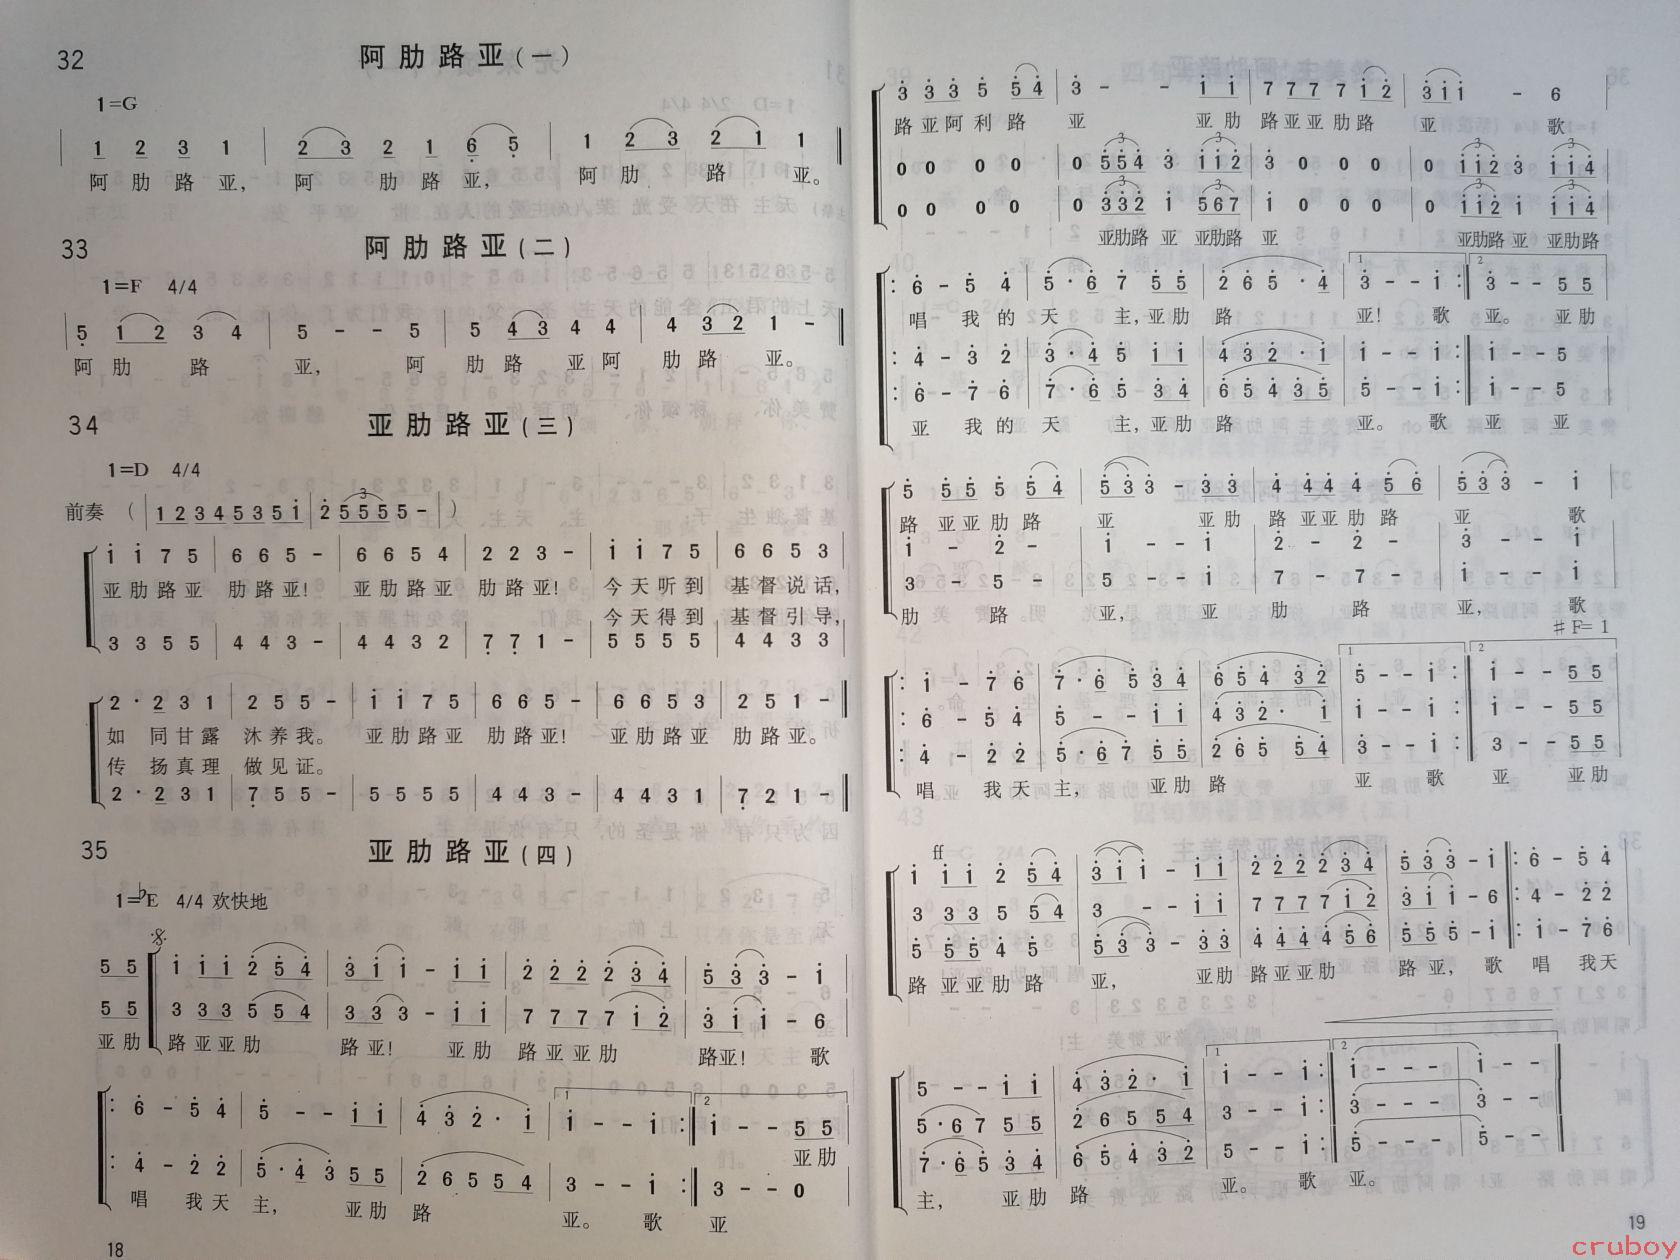 32
阿肋路亚(一)
1=G
1 2 3 1 | 2 3 2 1 6 5 | 1 2 3 2 1 1
阿肋路亚, 阿 肋路亚, 阿肋 路 亚。
33
阿肋路亚(二)
1=F 4/4
5 1 2 3 4 | 5 - - 5 | 5 4 3 4 4 | 4 3 2 1 -
阿肋 路 亚, 阿 肋路 亚阿 肋路 亚。
34
亚肋路亚(三)
1=D 4/4
前奏 ( 1 2 3 4 5 3 5 i | 2 5 5 5 5 - )
i i 7 5 | 6 6 5 - | 6 6 5 4 | 2 2 3 - | i i 7 5 | 6 6 5 3
亚肋路亚 肋路亚! 亚肋路亚 肋路亚! 今天听到 基督说话,
今天得到 基督引导,
3 3 5 5 | 4 4 3 - | 4 4 3 2 | 7 7 1 - | 5 5 5 5 | 4 4 3 3
2 · 2 3 1 | 2 5 5 - | i i 7 5 | 6 6 5 - | 6 6 5 3 | 2 5 1 -
如 同甘露 沐养我。 亚肋路亚 肋路亚! 亚肋路亚 肋路亚。
传 扬真理 做见证。
2 · 2 3 1 | 7 5 5 - | 5 5 5 5 | 4 4 3 - | 4 4 3 1 | 7 2 1 -
35
亚肋路亚(四)
1=♭E 4/4 欢快地
5 5 | i i i 2 5 4 | 3 i i - i i | 2 2 2 2 3 4 | 5 3 3 - i
5 5 | 3 3 3 5 5 4 | 3 3 3 - i i | 7 7 7 7 i 2 | 3 i i - 6
亚肋 路亚亚肋 路亚! 亚肋 路亚亚肋 路亚! 歌
6 - 5 4 | 5 - - i i | 4 3 2 · i | 1 i - - i :| 2 i - - 5 5
亚肋
4 - 2 2 | 5 · 4 3 5 5 | 2 6 5 5 4 | 3 - - i :| 3 - - 0
唱 我天 主, 亚肋 路 亚。 歌 亚
18
3 3 3 5 5 4 | 3 - - i i | 7 7 7 7 i 2 | 3 i i - 6
路亚阿利路 亚 亚肋 路亚亚肋路 亚 歌
0 0 0 0 | 0 5 5 4 3 i i 2 | 3 0 0 0 | 0 i i 2 3 i i 4
0 0 0 0 | 0 3 3 2 i 5 6 7 | i 0 0 0 | 0 i i 2 i i i 4
亚肋路 亚 亚肋路 亚 亚肋路 亚 亚肋路
6 - 5 4 | 5 · 6 7 5 5 | 2 6 5 · 4 | 1 3 - - i :| 2 3 - - 5 5
唱 我的天 主,亚肋 路 亚! 歌 亚。 亚肋
4 - 3 2 | 3 · 4 5 i i | 4 3 2 · i | i - - i :| i - - 5
6 - 7 6 | 7 · 6 5 3 4 | 6 5 4 3 5 | 5 - - i :| i - - 5
亚 我的天 主,亚肋 路 亚。 歌 亚 亚
5 5 5 5 5 4 | 5 3 3 - 3 3 | 4 4 4 4 5 6 | 5 3 3 - i
路 亚亚肋路 亚 亚肋 路亚亚肋路 亚 歌
i - 2 - | i - - i | 2 - 2 - | 3 - - i
3 - 5 - | 5 - - i | 7 - 7 - | i - - i
肋 路 亚, 亚 肋 路 亚, 歌
♯F=1
i - 7 6 | 7 · 6 5 3 4 | 6 5 4 3 2 | 1 5 - - i :| 2 i - - 5 5
6 - 5 4 | 5 - - i i | 4 3 2 · i | i - - i :| i - - 5 5
4 - 2 2 | 5 · 6 7 5 5 | 2 6 5 5 4 | 3 - - i :| 3 - - 5 5
唱 我天主, 亚肋 路 亚 歌 亚 亚肋
ff
i i i 2 5 4 | 3 i i - i i | 2 2 2 2 3 4 | 5 3 3 - i |: 6 - 5 4
3 3 3 5 5 4 | 3 - - i i | 7 7 7 7 i 2 | 3 i i - 6 |: 4 - 2 2
5 5 5 4 5 | 5 3 3 - 3 3 | 4 4 4 4 5 6 | 5 5 5 - i |: i - 7 6
路 亚亚肋路 亚, 亚肋 路亚亚肋 路亚, 歌 唱 我天
5 - - i i | 4 3 2 · i | 1 i - - i :| 2 i - - - | i - -
5 · 6 7 5 5 | 2 6 5 5 4 | 3 - - i :| 3 - - - | 3 - -
7 · 6 5 3 4 | 6 5 4 3 2 | 5 - - i :| 5 - - - | 5 - -
主, 亚肋 路 亚。 歌 亚。
19
cruboy